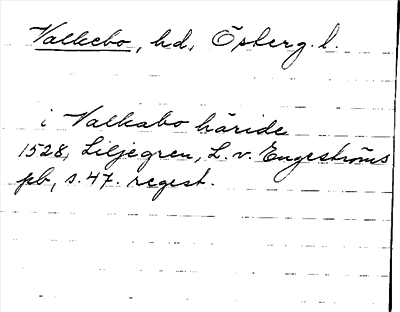 Valkebo, hd, Österg. l.
i Valkabo häride
1528, Liljegren, L. v. Engeströms
pb, s. 47. regest.